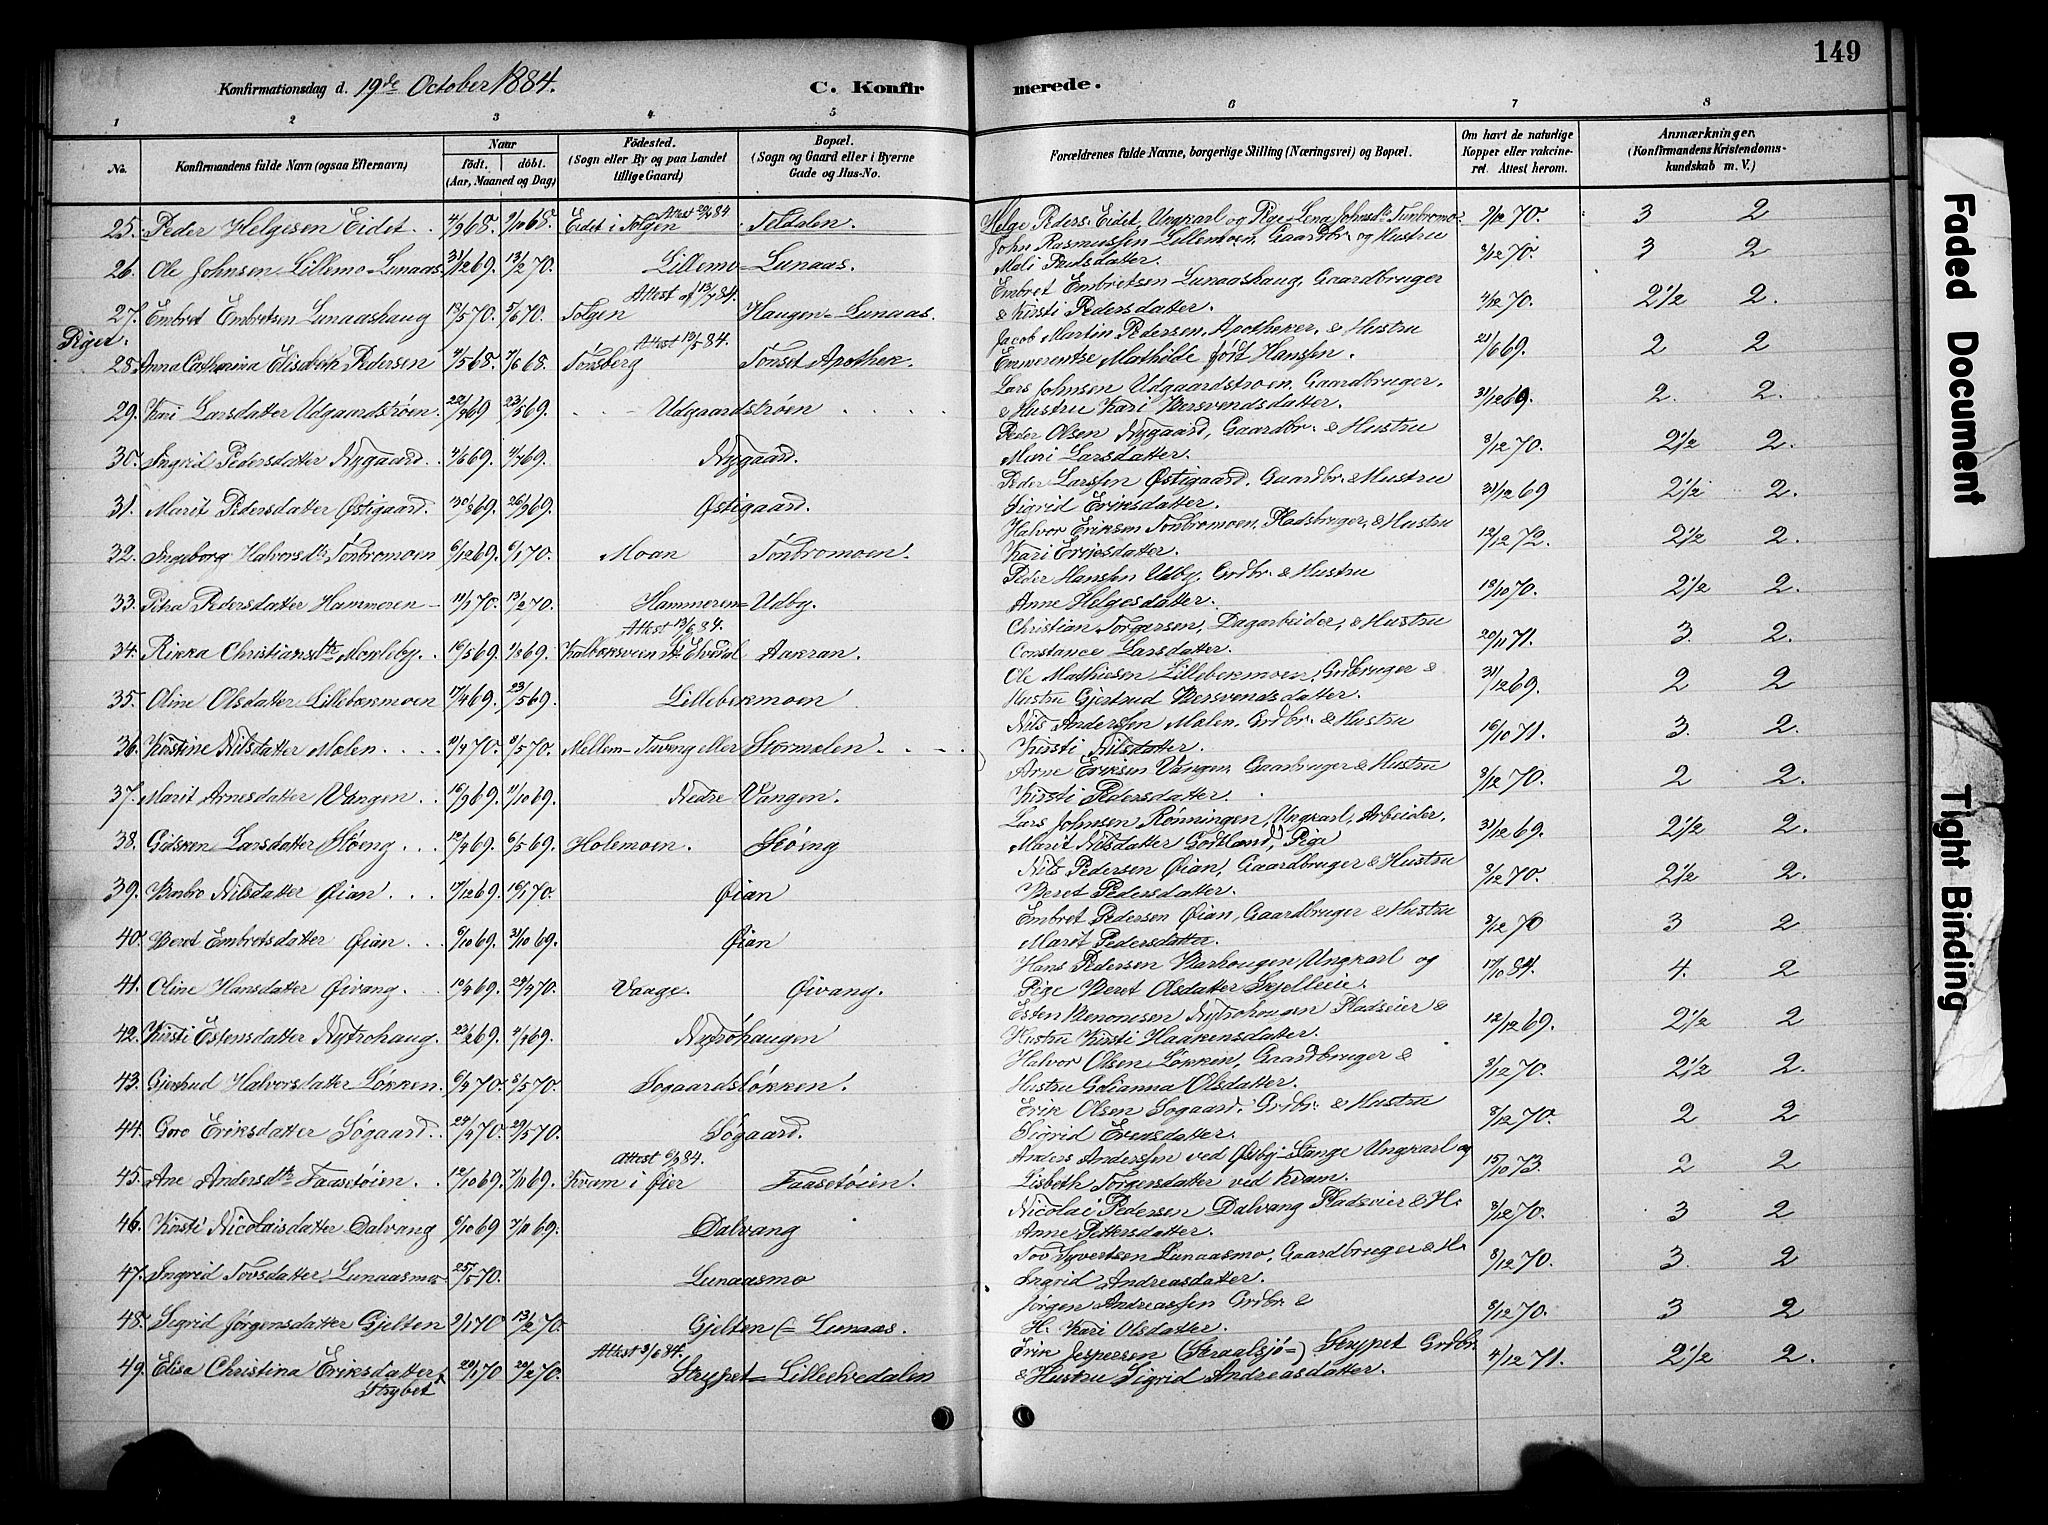 149
Konfirmationsdag d. 19de October 1884. C. Konfirmerede.
1 2 3 4 5 6 7 8
No. Konfirmandens fulde Navn (ogsaa Efternavn) Naar födt. döbt. (Aar, Maaned og Dag) Födested. (Sogn eller By og paa Landet tillige Gaard) Bopæl. (Sogn og Gaard eller i Byerne Gade og Hus-No. Forældrenes fulde Navne, borgerlige Stilling (Næringsvei) og Bopæl. Om havt de naturlige Kopper eller vaccineret. Attest herom. Anmærkninger, (Konfirmandens Kristendomskundskab m. V.)
25. Peder Helgesen Eidet. 4/9 68. 9/10 68. Eidet i Tolgen Attest 29/6 84 Teldalen. Helge Peders. Eidet, Ungkarl og Pige Lena Johnsdtr Tonbromo. 2/12 70. 3 2
26. Ole Johnsen Lillemo-Lunaas. 31/12 69. 13/2 70. Lillemo-Lunaas. John Rasmussen Lillemoen, Gaardbr. og Hustru Mali Paulsdatter. 3/12 70. 3 2
27. Embret Embretsen Lunaashaug 13/5 70. 5/6 70. Tolgen Attest af 13/7 84. Haugen-Lunaas. Embret Embretsen Lunaashaug, Gaardbruger & Kirsti Pedersdatter. 4/12 70. 2 1/2 2.
Piger.
28. Anna Catharina Elisabeth Pedersen 4/5 68. 7/6 68. Tönsberg Attest 13/5 84. Tönset Apothek. Jacob Martin Pedersen, Apotheker, & Hustru Emerentze Mathilde født Hansen. 21/6 69. 2 2
29. Kari Larsdatter Udgaardströen. 22/4 69 23/5 69. Udgaardströen Lars Johnsen Udgaardströen. Gaardbruger. & Hustru Kari Bersvendsdatter. 31/12 69. 2. 2.
30. Ingrid Pedersdatter Nygaard. 4/6 69. 4/7 69. Nygaard. Peder Olsen Nygaard, Gaardbr. & Hustru Mari Larsdatter. 3/12 70. 2 1/2 2.
31. Marit Pedersdatter Østigaard. 30/8 69. 26/9 69. Østigaard. Peder Larssen Østigaard, Gaardbr. & Hustru Sigrid Eriksdatter. 31/12 69 2 1/2 2.
32. Ingeborg Halvorsdtr Tonbromoen 6/12 69. 6/1 70. Moan Tonbromoen. Halvor Eriksen Tonbromoen, Pladsbruger, & Hustru Kari Eriksdatter. 12/12 72. 2 1/2 2.
33. Petra Pedersdatter Hammeren 11/1 70. 13/2 70. Hammeren-Udby. Peder Hanssen Udby, Grdbr. & Hustru Anne Helgesdatter. 18/10 70. 2 1/2 2.
34. Rikka Christiansdtr 16/5 69. Attest 13/6 84. Aakran. Christian Torgersen, Dagarbeider, & Hustru Constance Larsdatter. 20/11 71. 3. 2.
35. Oline Olsdatter Lillebekmoen 17/4 69. 23/5 69. Lillebekmoen Ole Mathiesen Lillebekmoen, Grdbruger & Hustru Gjertrud Bersvendsdatter. 31/12 69. 2 2
36. Kirstine Nilsdatter Mælen. 11/4 70. 8/5 70. Mellem-Tuvang eller Stormælen. Nils Anderssen Mælen, Grdbr. & Hustru Kirsti Nilsdatter. 16/10 71. 3. 2
37. Marit Arnesdatter Vangen. 16/9 69. 11/10 69. Nedre Vangen. Arne Eriksen Vangen, Gaarbruger & Hustru Kirsti Pedersdatter. 3/12 70. 2 2.
38. Gidsken Larsdatter Höeng. 12/4 69. 6/5 69. Holemoen. Höeng Lars Johnsen Rönningen, Ungkarl, Arbeider, Marit Nilsdatter Godtland, Pige 31/12 69. 2 1/2 2.
39. Barbro Nilsdatter Öian. 17/12 69. 16/1 70. Öian Nils Pedersen Öian, Gaardbruger & Hustru Beret Pedersdatter. 3/12 70. 2 1/2 2.
40. Beret Embretsdatter Öian. 6/10 69. 31/10 69. Öian Embret Pedersen Öian, Gaardbruger & Hustru Marit Pedersdatter. 3/12 70 3 2
41. Oline Hansdatter Öivang. 10/4 69. Vange. Öivang. Hans Pedersen Barhougen, Ungkarl og Pige Beret Olsdatter. 17/10 84. 4. 2
42. Kirsti Estensdatter Nytrohaug. 23/2 69. 4/4 69. Nytröhaugen Esten Benonisen Nytrohougen Pladseier & Hustru Kirsti Haakensdatter. 12/12 69. 2 1/2 2
43. Gjertrud Halvorsdatter Løkken. 6/4 70. 8/5 70. Sogaardsløkken. Halvor Olsen Løkken, Gaardbruger & Hustru Golianna Olsdatter. 3/12 70. 2 1/2 2.
44. Goro Eriksdatter Søgaard. 24/4 70. 29/5 70. Søgaard. Erik Olsen Søgaard, Grdbr. & Hustru Sigrid Evensdatter. 8/12 70. 2 2
45. Ane Andersdtr Faasetöien. 12/10 69. 7/11 69. Kvam i Öier Attest 6/9 84. Faasetöien. Anders Anderssen ved Øvby-Stange Ungkarl og Lisbeth Torgersdatter ved Kvam. 15/10 73. 2 2
46. Kirsti Nicolaisdatter Dalvang 6/10 69 7/11 69. Dalvang Nicolai Pedersen Dalvang Pladseier & H. Anne Pettersdatter. 3/12 70. 3 2
47. Ingrid Tovsdatter Lunaasmo 25/5 70. Lunaasmo Tov Syvertsen Lunaasmo, Gaardbruger & H. Ingrid Andreasdatter. 8/12 70. 3. 2
48. Sigrid Jørgensdatter Gjelten 9/1 70 13/2 70. Gjelten (= Lunaas. Jørgen Andreassen Grdbr. & H. Kari Olsdatter. 8/12 70. 3 2
49. Elisa Christina Eriksdatter Strybet 20/1 70 20/2 70. Attest 3/6 84. Strypet = Lilleelvedalen Erik Jespersen (Straalsjö=) Strypet Grdbr. & Hustru Sigrid Andreasdatter. 4/12 71. 2 1/2 2.
Faded Document
Tight Binding